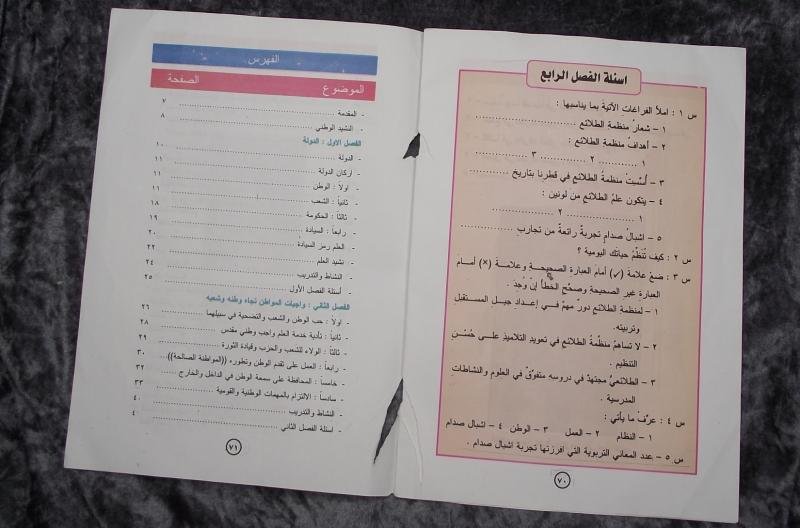 اسئلة الفصل الرابع
س ١ : املأ الفراغات الآتية بما يناسبها :
١ – شعارُ منظمة الطلائع ..................
٢ – أهدافُ منظمة الطلائع :
١ ............ ٢ ............ ٣ ............
٣ – أُسِّسَتْ منظمةُ الطلائع في قطرنا بتاريخ ............
٤ – يتكون علمُ الطلائع من لونين :
١ .................. ٢ ..................
٥ – اشبالُ صدام تجربةٌ رائعةٌ من تجارب ..................
س ٢ : كيف تُنظِّمُ حياتك اليومية ؟
س ٣ : ضعْ علامة (✓) أمامَ العبارة الصحيحة وعلامة (×) أمام
العبارة غير الصحيحة وصحِّح الخطأ إن وُجِدَ .
١ – لمنظمة الطلائع دورٌ مهمٌ في إعداد جيل المستقبل
وتربيته.
٢ – لا تساهمُ منظَّمةُ الطلائع في تعويد التلاميذ على حُسْنِ
التنظيم .
٣ – الطلائعيُّ مجتهدٌ في دروسه متفوِّقٌ في العلوم والنشاطات
المدرسية .
س ٤ : عرِّفْ ما يأتي :
١ – النظام ٢ – العمل ٣ – الوطن ٤ – اشبال صدام
س ٥ – عدد المعاني التربوية التي افرزتها تجربة اشبال صدام .
٧٠
الفهرس
الموضوع الصفحة
- المقدمة ٧
- النشيد الوطني ٨
الفصل الاول : الدولة
- الدولة ١٠
- أركان الدولة ١١
- اولاً : الوطن ١١
- ثانياً : الشعب ١١
- ثالثاً : الحكومة ١٨
- رابعاً : السيادة ١٩
- العلم رمز السيادة ٢٠
- نشيد العلم ٢٢
- النشاط والتدريب ٢٤
- أسئلة الفصل الأول ٢٥
الفصل الثاني : واجبات المواطن تجاه وطنه وشعبه
- اولاً : حب الوطن والشعب والتضحية في سبيلهما ٢٦
- ثانياً : تأدية خدمة العلم واجب وطني مقدس ٢٨
- ثالثاً : الولاء للشعب والحزب وقيادة الثورة ٢٩
- رابعاً : العمل على تقدم الوطن وتطوره ((المواطنة الصالحة)) ٣٠
- خامساً : المحافظة على سمعة الوطن في الداخل والخارج ٣٢
- سادساً : الالتزام بالمهمات الوطنية والقومية ٣٣
- النشاط والتدريب ٤٠
- اسئلة الفصل الثاني
٧١